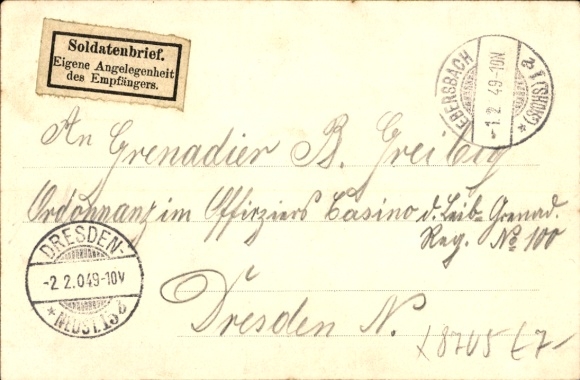 Soldatenbrief.
Eigene Angelegenheit
des Empfängers.
EBERSBACH
-1.2. 49-10V
a
An Grenadier B. Greibig
Ordonnanz im Offiziers Casino d. Leib-Grenad.
Reg. No 100
DRESDEN-
-2.2.049-10V
*NEUST.15
Dresden N.